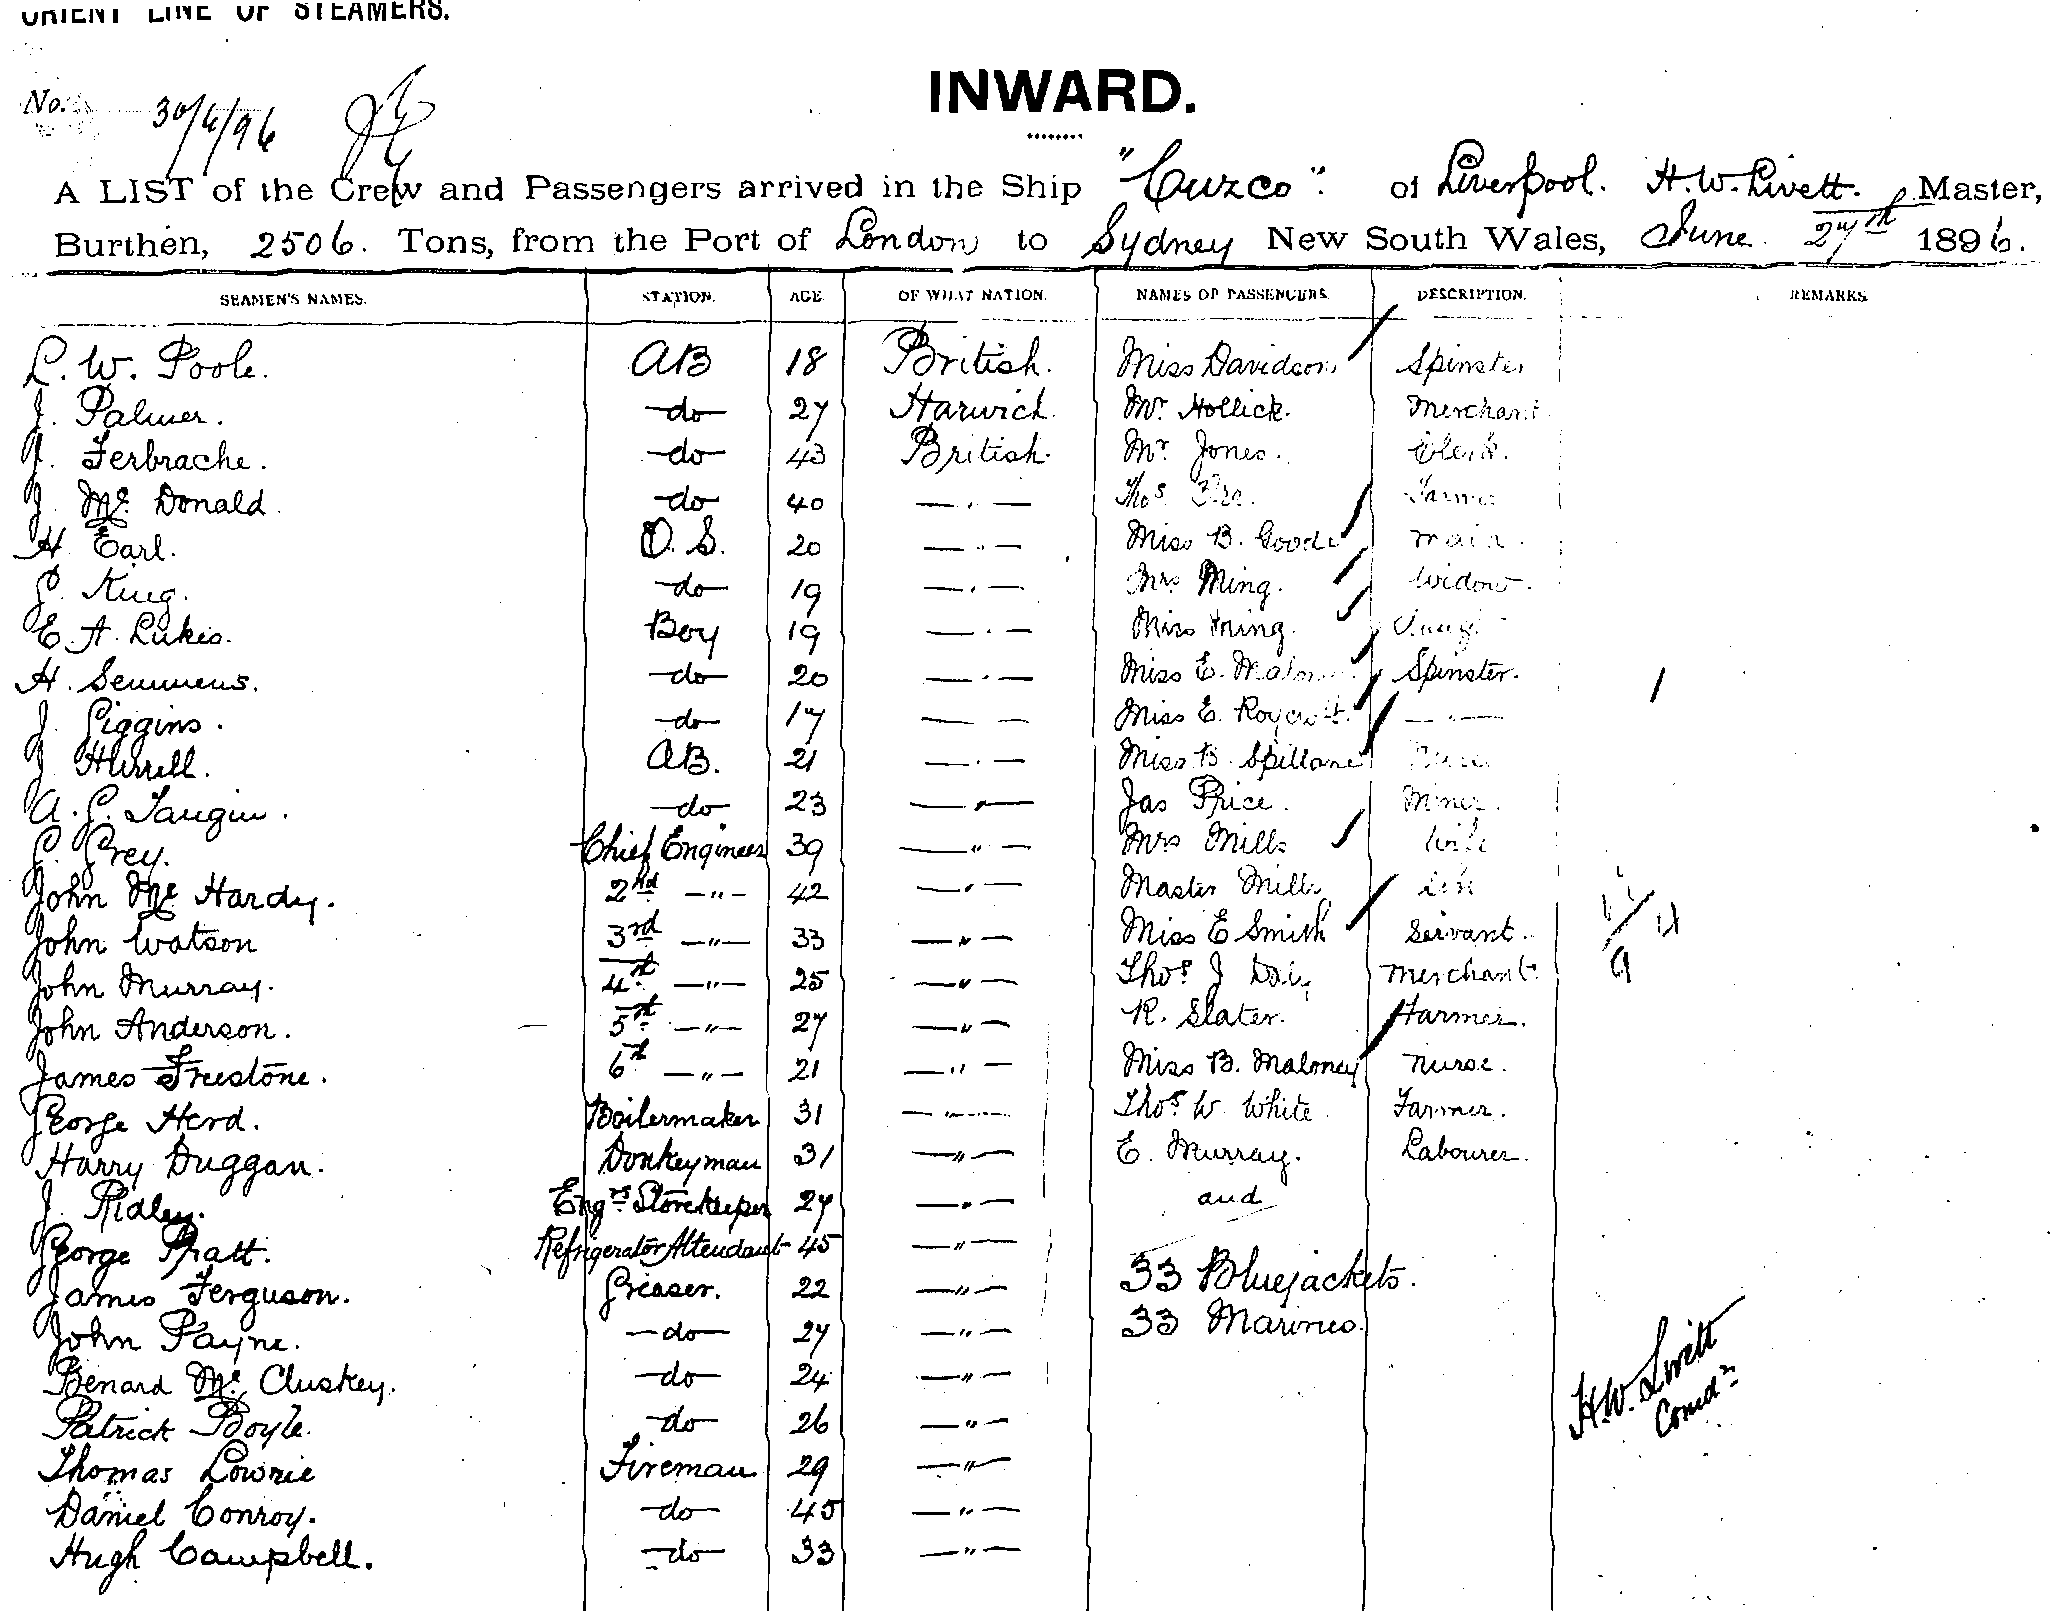 ORIENT LINE OF STEAMERS.
INWARD.
No. 30/6/96
A LIST of the Crew and Passengers arrived in the Ship "Cuzco". of Liverpool. H. W. Livett. Master,
Burthen, 2506. Tons, from the Port of London to Sydney New South Wales, June 27th 1896.
SEAMEN'S NAMES. STATION. AGE OF WHAT NATION. NAMES OF PASSENGERS. DESCRIPTION. REMARKS
L. W. Poole. AB 18 British. Miss Davidson Spinster
J. Palmer. do 27 Harwich. Mr. Hollick. Merchant
Ferbrache. do 43 British. Mr. Jones. Clerk.
J. Mc. Donald do 40 — " — Thos. Farmer
H. Earl. O. S. 20 — " — Miss B. Goode maid.
King. do 19 — " — Mrs Ming. Widow.
E. A. Lukis. Boy 19 — " — Miss Ming.
H. Semmens. do 20 — " — Miss E. Spinster.
J. Giggins. do 17 — " — Miss E. Roycroft. — " —
J. Hurrell. AB. 21 — " — Miss B. Spillane
A. G. do 23 — " — Jas Price. Miner.
G. Grey. Chief Engineer 39 — " — Mrs Mills wife
John Mc Hardy. 2nd — " — 42 — " — Master Mills Son
John Watson 3rd — " — 33 — " — Miss E Smith Servant.
John Murray. 4th — " — 25 — " — Thos. J Merchant.
John Anderson. 5th — " — 27 — " — R. Slater. Farmer.
James Freestone. 6th — " — 21 — " — Miss B. Maloney nurse.
George Herd. Boilermaker 31 — " — Thos. W. White. Farmer.
Harry Duggan. Donkeyman 31 — " — E. Murray. Labourer.
J. Ridley. Engrs. Storekeeper 27 — " — and
George Pratt. Refrigerator Attendant 45 — " —
James Ferguson. Greaser. 22 — " — 33 Bluejackets.
John Payne. do 27 — " — 33 Marines.
Benard Mc. Cluskey. do 24 — " —
Patrick Boyle. do 26 — " — H. W. Livett
Thomas Lowrie Fireman 29 — " — Comdr
Daniel Conroy. do 45 — " —
Hugh Campbell. do 33 — " —